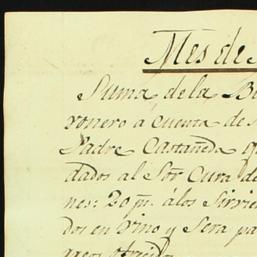 Mes de
Suma de la B
ronero á cuenta de
Padre Castañeda q
dados al Sor Cura de
nes: 20 p. á los Sirvie
dos en Vino y Sera pa